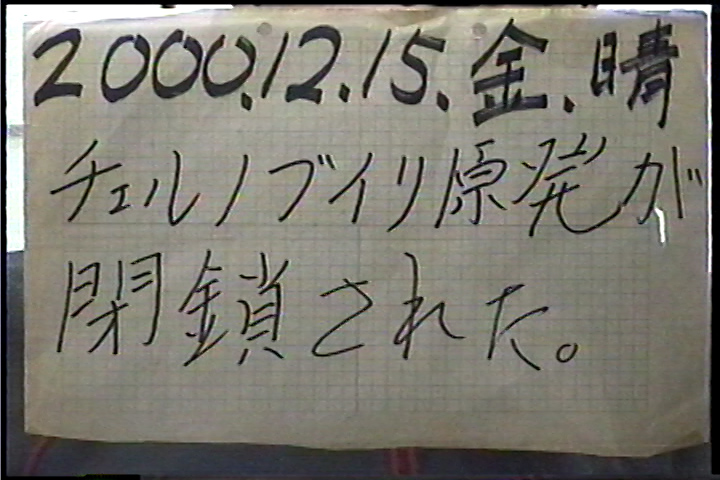 2000.12.15.金.晴
チェルノブイリ原発が
閉鎖された。